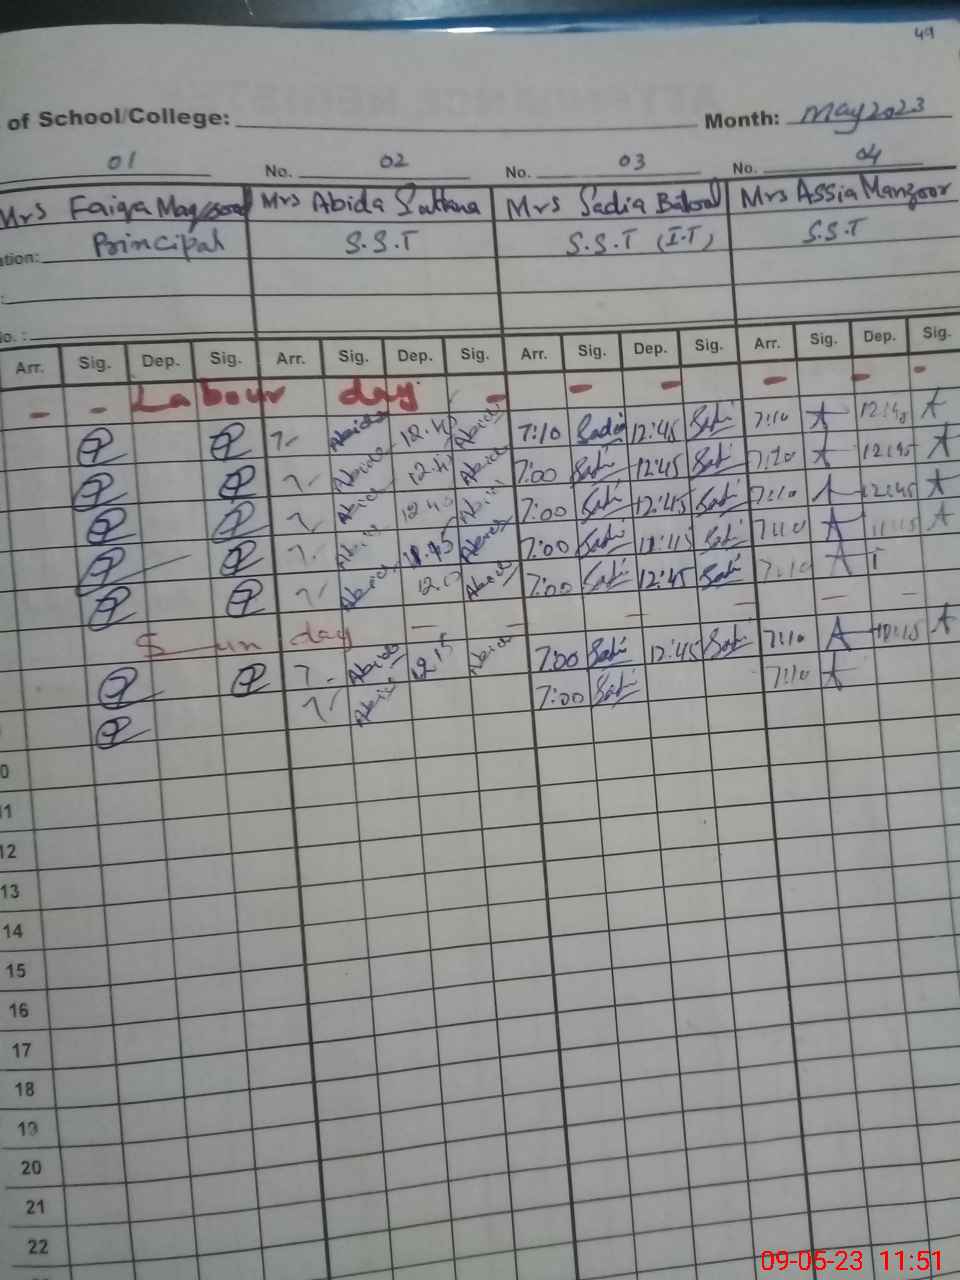 49
of School/College: Month: May 2023
01 No. 02 No. 03 No. 04
Mrs Faiqa Mrs Abida Sultana Mrs Sadia Batool Mrs Assia Manzoor
ation: Principal S.S.T S.S.T (I.T) S.S.T
:
No. :
Arr. Sig. Dep. Sig. Arr. Sig. Dep. Sig. Arr. Sig. Dep. Sig. Arr. Sig. Dep. Sig.
- - Labour day - - - - - -
7- Abida 12.45 Abida 7:10 Sadia 12:45 Sadi 7:10 A 12:45 A
7- Abida Abida 7:00 Sadi 12:45 Sadi 7:10 A 12:45 A
7- Abida 12 40 Abida 7:00 Sadi 12:45 Sadi 7:10 A 12:45 A
7- Abida Abida 7:00 Sadi 11:15 Sadi 7:10 A 11:15 A
7- Abida Abida 7:00 Sadi 12:45 Sadi 7:10 A
Sunday - - - - - -
7- Abida 12 15 Abida 7:00 Sadi 12:45 Sadi 7:10 A A
7- Abida 7:00 Sadi 7:10 A
0
11
12
13
14
15
16
17
18
19
20
21
22
09-05-23 11:51